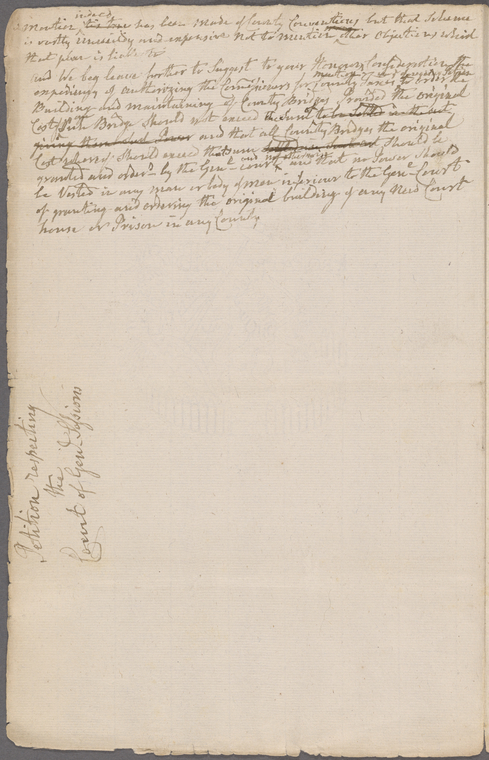 indeed
mention has been made of County Conventions but that Scheme
is vastly unweildy and expensive not to mention other Objections which
that plan is liable to
And We beg leave further to Suggest to your Honours Consideration the
expediency of authorizing the Court of Sessions for County to order the
Building and maintaining of County Bridges provided the original
Cost of such Bridge Should not exceed the Sum of
and that all County Bridges the original
Cost whereof Should exceed that sum Should be
granted and order'd by the Gen.l Court and not otherwise and that no Power Should
be Vested in any man or body of Men inferiour to the Gen.l Court
of granting and ordering the original building of any New Court
house or Prison in any County
Petition respecting
the
Court of Gen.l Sessions